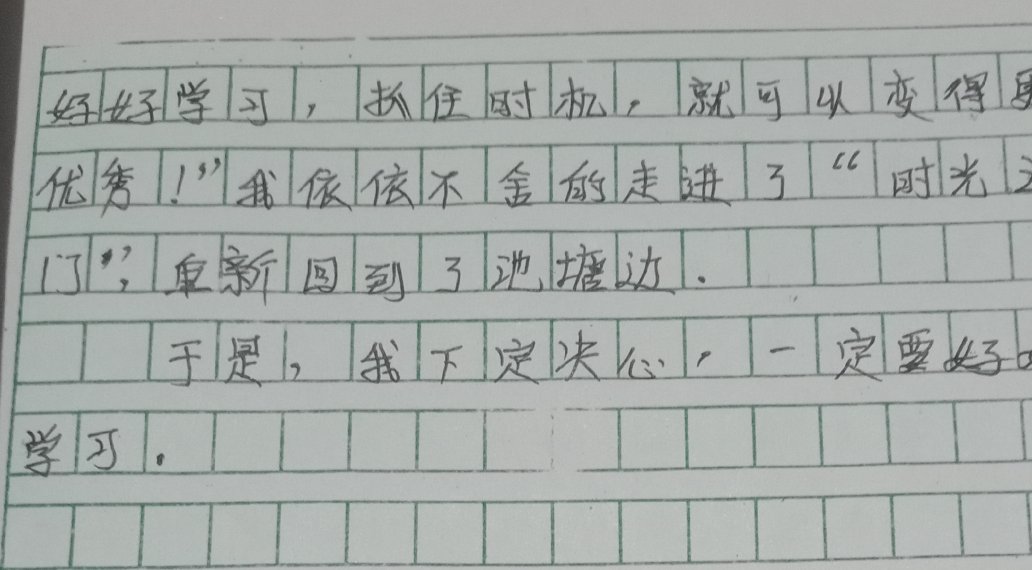 好好学习，抓住时机，就可以变得更
优秀！”我依依不舍的走进了“时光之
门”，重新回到了池塘边.
于是，我下定决心，一定要好
学习.